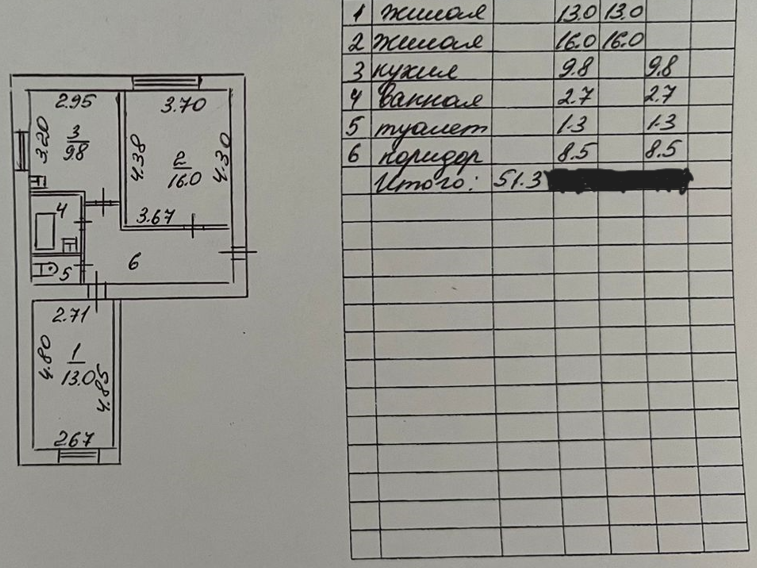 1 жилая 13.0 13.0
2 жилая 16.0 16.0
3 кухня 9.8 9.8
4 ванная 2.7 2.7
5 туалет 1.3 1.3
6 коридор 8.5 8.5
Итого: 51.3
2.95 3.70
3.20 3 9.8 4.38 2 16.0 4.30
3.67
4
5 6
2.71
4.80 1 13.0 4.85
2.67